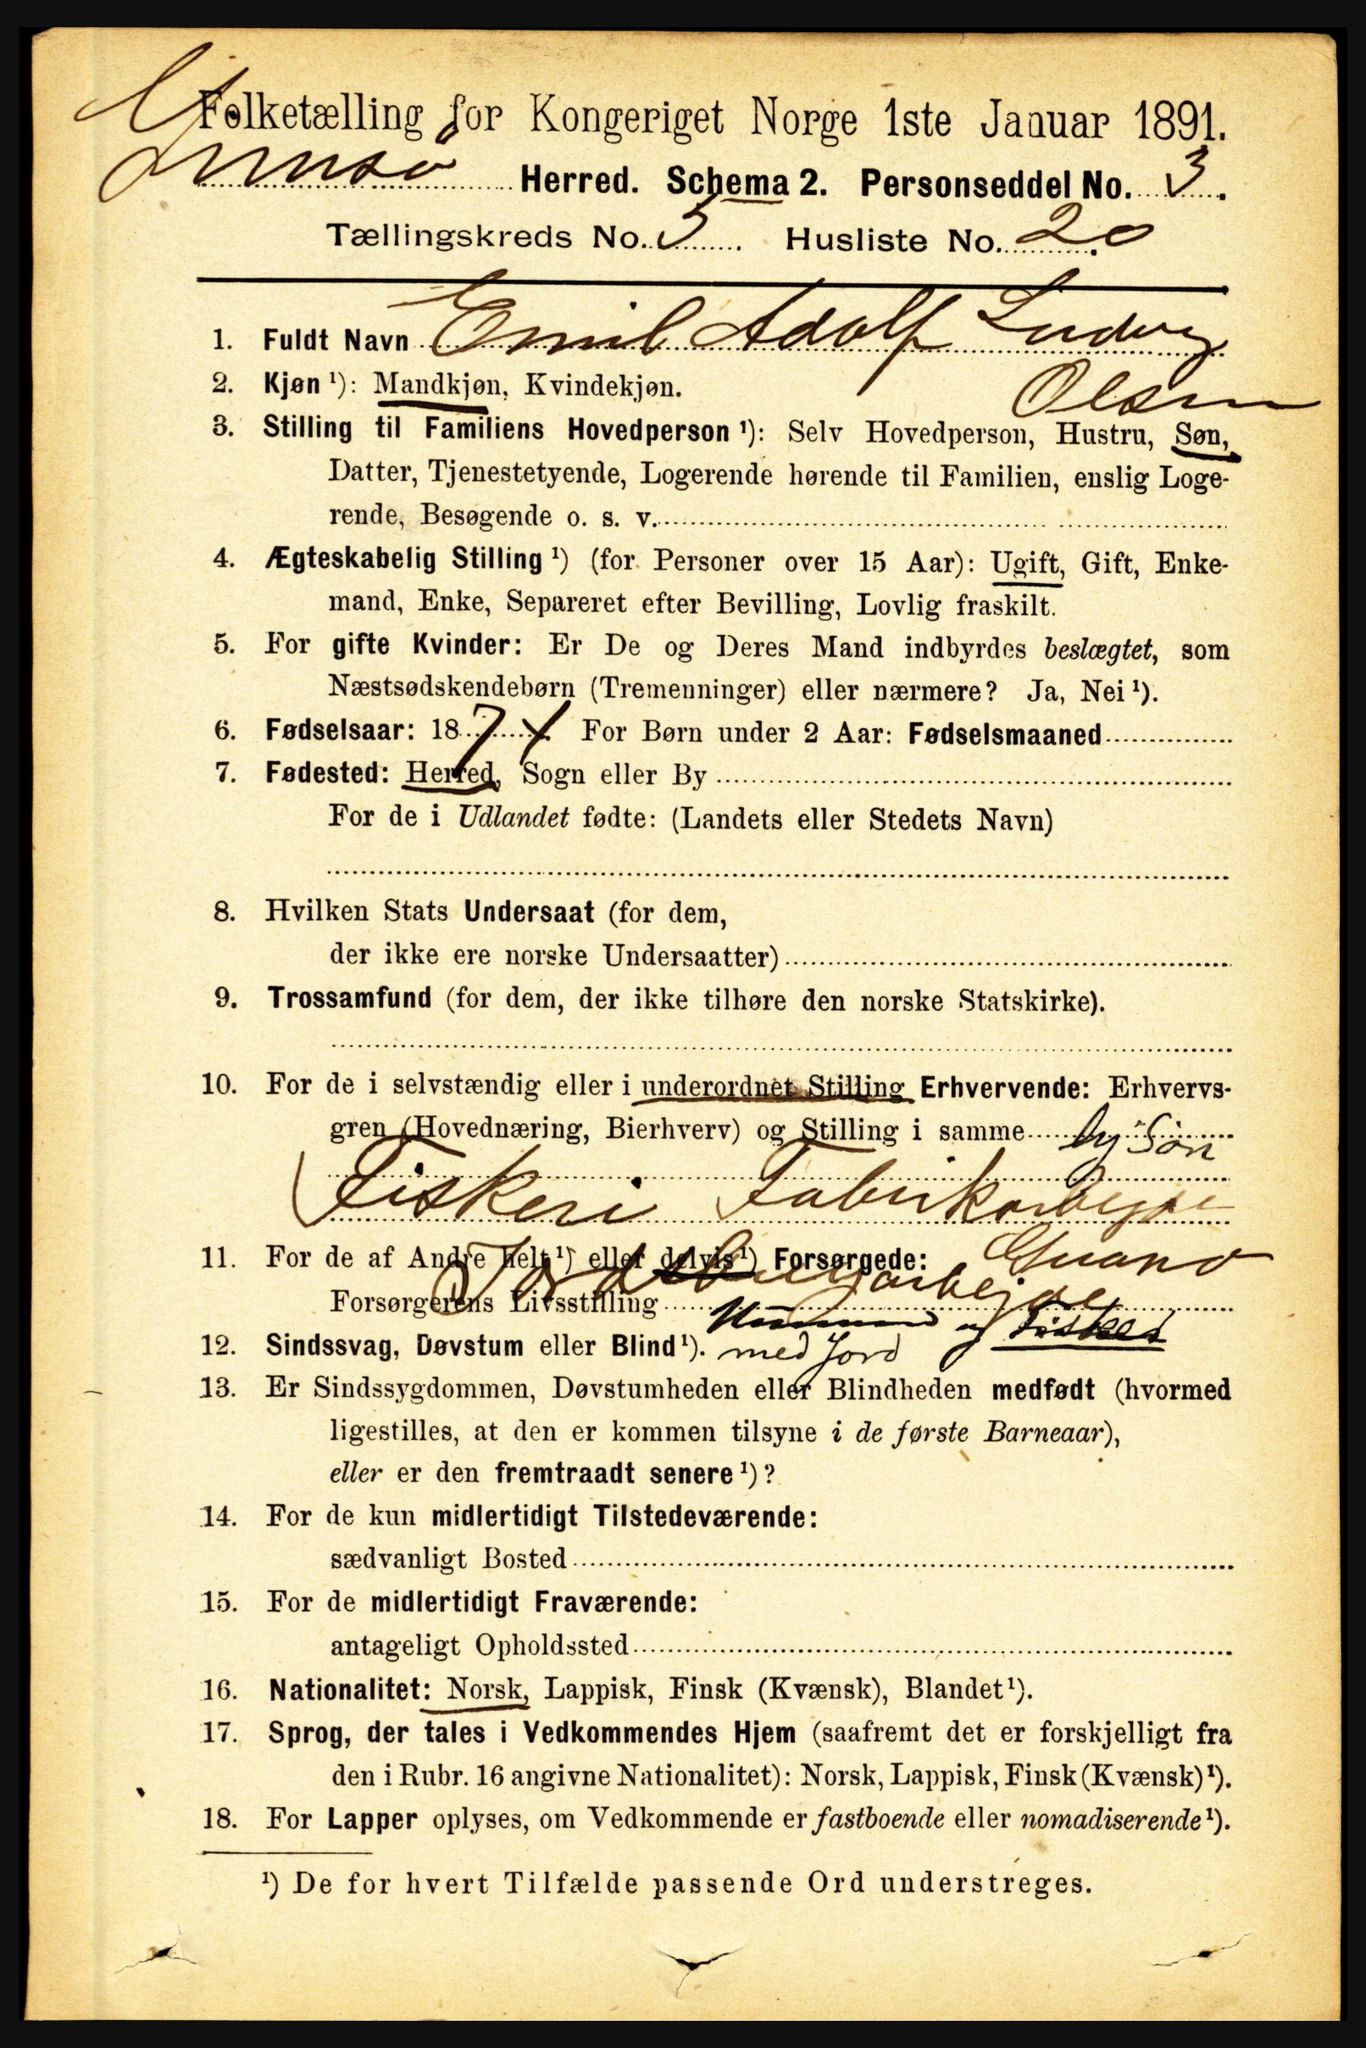 Folketælling for Kongeriget Norge 1ste Januar 1891.
Gimsø Herred. Schema 2. Personseddel No. 3.
Tællingskreds No. 5 Husliste No. 20
1. Fuldt Navn Emil Adolf Ludvig
Olsen
2. Kjøn ¹): Mandkjøn, Kvindekjøn.
3. Stilling til Familiens Hovedperson ¹): Selv Hovedperson, Hustru, Søn,
Datter, Tjenestetyende, Logerende hørende til Familien, enslig Loge-
rende, Besøgende o. s. v.
4. Ægteskabelig Stilling ¹) (for Personer over 15 Aar): Ugift, Gift, Enke-
mand, Enke, Separeret efter Bevilling, Lovlig fraskilt.
5. For gifte Kvinder: Er De og Deres Mand indbyrdes beslægtet, som
Næstsødskendebørn (Tremenninger) eller nærmere? Ja, Nei ¹).
6. Fødselsaar: 1874 For Børn under 2 Aar: Fødselsmaaned
7. Fødested: Herred, Sogn eller By
For de i Udlandet fødte: (Landets eller Stedets Navn)
8. Hvilken Stats Undersaat (for dem,
der ikke ere norske Undersaatter)
9. Trossamfund (for dem, der ikke tilhøre den norske Statskirke).
10. For de i selvstændig eller i underordnet Stilling Erhvervende: Erhvervs-
gren (Hovednæring, Bierhverv) og Stilling i samme
Søn
Fiskeri Fabrikarbejde
Guano
11. For de af Andre helt ¹) eller delvis ¹) Forsørgede:
Jordbrugarbejde
Forsørgerens Livsstilling og Fisker
med Jord
12. Sindssvag, Døvstum eller Blind ¹).
13. Er Sindssygdommen, Døvstumheden eller Blindheden medfødt (hvormed
ligestilles, at den er kommen tilsyne i de første Barneaar),
eller er den fremtraadt senere ¹)?
14. For de kun midlertidigt Tilstedeværende:
sædvanligt Bosted
15. For de midlertidigt Fraværende:
antageligt Opholdssted
16. Nationalitet: Norsk, Lappisk, Finsk (Kvænsk), Blandet ¹).
17. Sprog, der tales i Vedkommendes Hjem (saafremt det er forskjelligt fra
den i Rubr. 16 angivne Nationalitet): Norsk, Lappisk, Finsk (Kvænsk) ¹).
18. For Lapper oplyses, om Vedkommende er fastboende eller nomadiserende ¹).
¹) De for hvert Tilfælde passende Ord understreges.